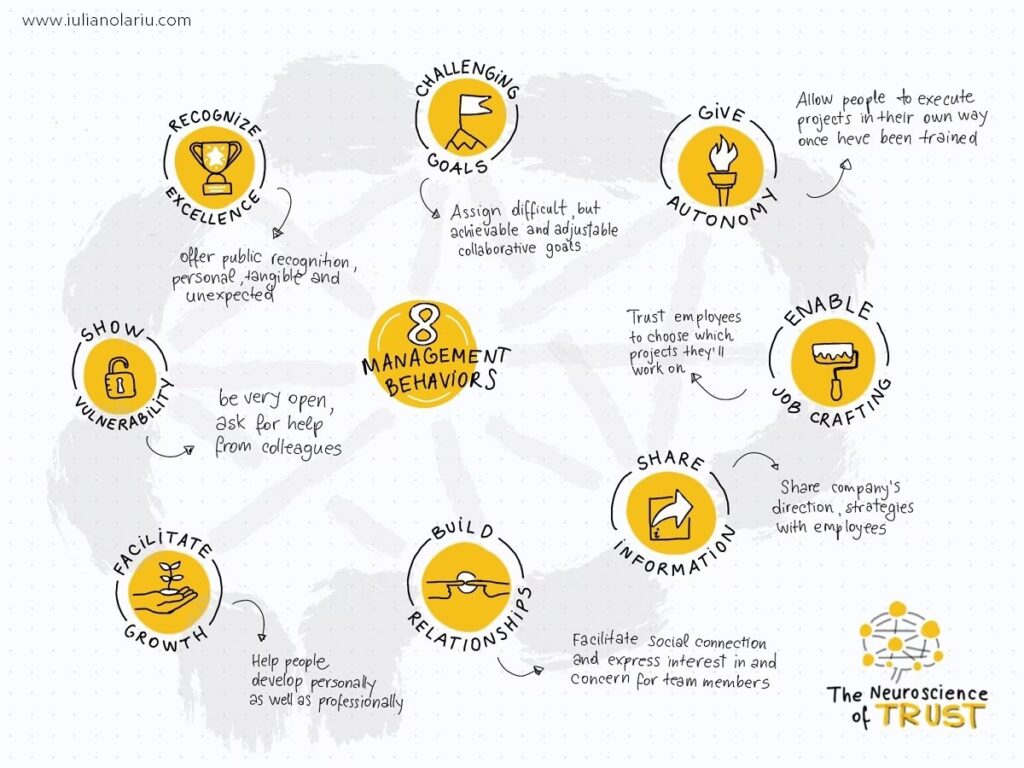 www.iulianolariu.com
8
MANAGEMENT
BEHAVIORS
RECOGNIZE
EXCELLENCE
offer public recognition,
personal, tangible and
unexpected
CHALLENGING
GOALS
Assign difficult, but
achievable and adjustable
collaborative goals.
GIVE
AUTONOMY
Allow people to execute
projects in their own way
once heve been trained
ENABLE
JOB CRAFTING
Trust employees
to choose which
projects they'll
work on
SHARE
INFORMATION
i
Share company's
direction, strategies
with employees
BUILD
RELATIONSHIPS
Facilitate social connection
and express interest in and
concern for team members
FACILITATE
GROWTH
Help people
develop personally
as well as professionally
SHOW
VULNERABILITY
be very open,
ask for help
from colleagues
The Neuroscience
of TRUST